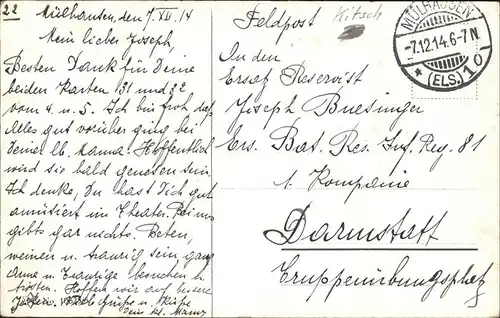 22
Mülhausen, den 7. XII. 14
Mein lieber Joseph,
Besten Dank für Deine
beiden Karten 31 und 32
vom 4. u. 5. Ich bin froh, daß
Alles gut vorüber ging bei
Deiner lb. Mama. Hoffentlich
wird sie bald genesen sein.
Ich denke, Du hast Dich gut
amüsiert im Theater. Bei uns
gibts gar nichts. Beten,
weinen u. traurig sein, ganz
Arme u. Traurige besuchen u.
trösten. Hoffen wir auf bessere
Grüße u. Küsse
Feldpost
Kitsch
MÜLHAUSEN
-7.12.14.6-7N
* (ELS.) 10
An den
Ersatz Reservist
Joseph Buesinger
Ers. Bat. Res. Inf. Reg. 81
1. Kompanie
Darmstatt
Truppenübungsplatz